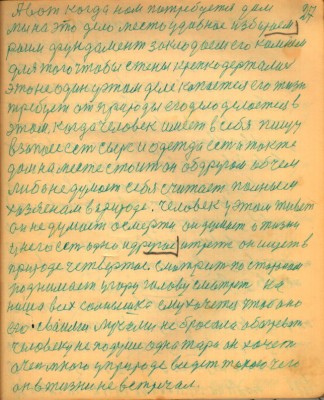 А вот когда нам потребуется дом
мы на это дело место удавное избираем
роим фундамент закладаем его камнем
для того чтобы стены крепко держали
это не один у этом деле копается его жизнь
требует от природы его дело делается в
этом, когда человек имеет в себя пищу
в запосе есть сырье и одежда есть так же
дом на месте стоит он об другом об чем
либо не думает себя считает полным
хозяенам в природе. Человек у этом живет
он не думает о смерти он думает о жизни
у него есть одно и другое третье он ищет в
природе четвертое. Смотрит по сторонам
поднимает угору голову смотрит на
наша всех солнышко ему хочется чтоб оно
его своими лучами не бросала обогревать
человеку не по душе одна тара он хочет
очетного у природе видет такого чего
он в жизни не встречал.